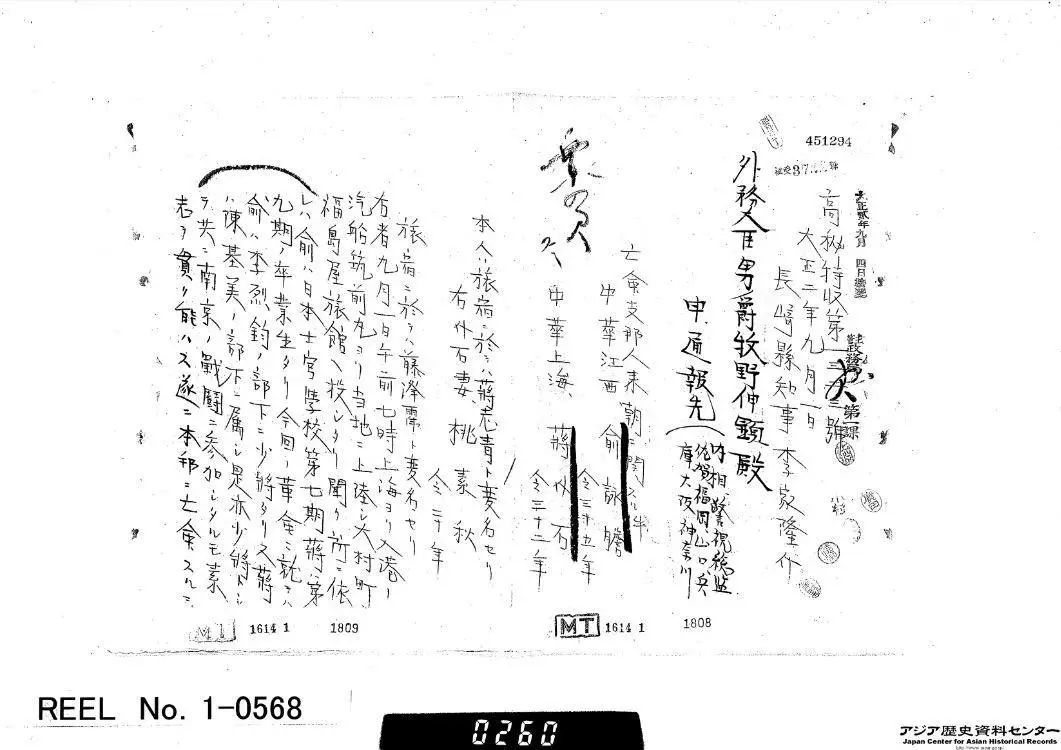 451294
高秘特収第
大正二年九月一日
長崎縣知事 李家隆介
外務大臣男爵牧野伸顕殿
申通報先(内相、警視総監
佐賀福岡、山口兵
庫大阪神奈川
亡命支那人来朝ニ関スル件
中華江西 俞詠瞻
今三十五年
中華上海 蒋介石
今三十二年
本人ハ旅宿ニ於テハ蒋志青ト変名セリ
右介石妻 桃素秋
今二十年
旅宿ニ於テハ藤澤霈ト変名セリ
右者九月一日午前七時上海ヨリ入港ノ
汽船筑前丸ヨリ当地ニ上陸シ大村町
福島屋旅館ヘ投シタリ聞ク所ニ依
レハ俞ハ日本士官学校第七期蒋ハ第
九期ノ卒業生タリ今回ノ革命ニ就テハ
俞ハ李烈鈞ノ部下ニ少将タリ又蒋
ハ陳基美ノ部下ニ属シ是亦少将トシ
テ共ニ南京ノ戦闘ニ参加シタルモ素
志ヲ貫ク能ハス遂ニ本邦ニ亡命スルニ
MT 1614 1 1808
MT 1614 1 1809
REEL No. 1-0568
0260
アジア歴史資料センター
Japan Center for Asian Historical Records